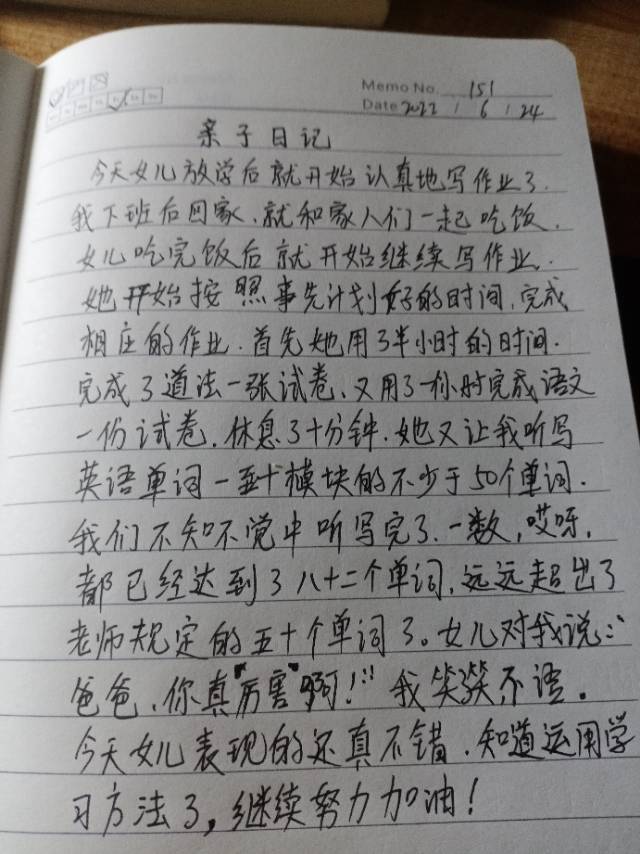 Memo No. 151
Date 2022 / 6 / 24
亲子日记
今天女儿放学后就开始认真地写作业了.
我下班后回家、就和家人们一起吃饭.
女儿吃完饭后就开始继续写作业.
她开始按照事先计划好的时间.完成
相应的作业.首先她用了半小时的时间.
完成了道法一张试卷、又用了一小时完成语文
一份试卷.休息了十分钟.她又让我听写
英语单词一至十模块的不少于50个单词.
我们不知不觉中听写完了.一数,哎呀,
都已经达到了八十二个单词,远远超出了
老师规定的五十个单词了。女儿对我说:“
爸爸、你真"厉害"啊!” 我笑笑不语。
今天女儿表现的还真不错.知道运用学
习方法了,继续努力加油!